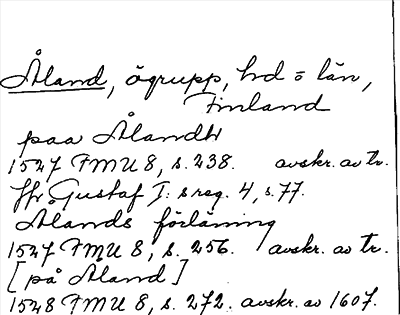 Åland, ögrupp, hd o län,
Finland
paaÅlandh
1527 FMU 8, s. 238. avskr. av tr.
Hr Gustaf I: s reg. 4, s. 77.
Ålands förläning
1527 FMU 8, s. 256. avskr. av tr.
[på Åland]
1528 FMU 8, s. 272. avskr. av 1607.